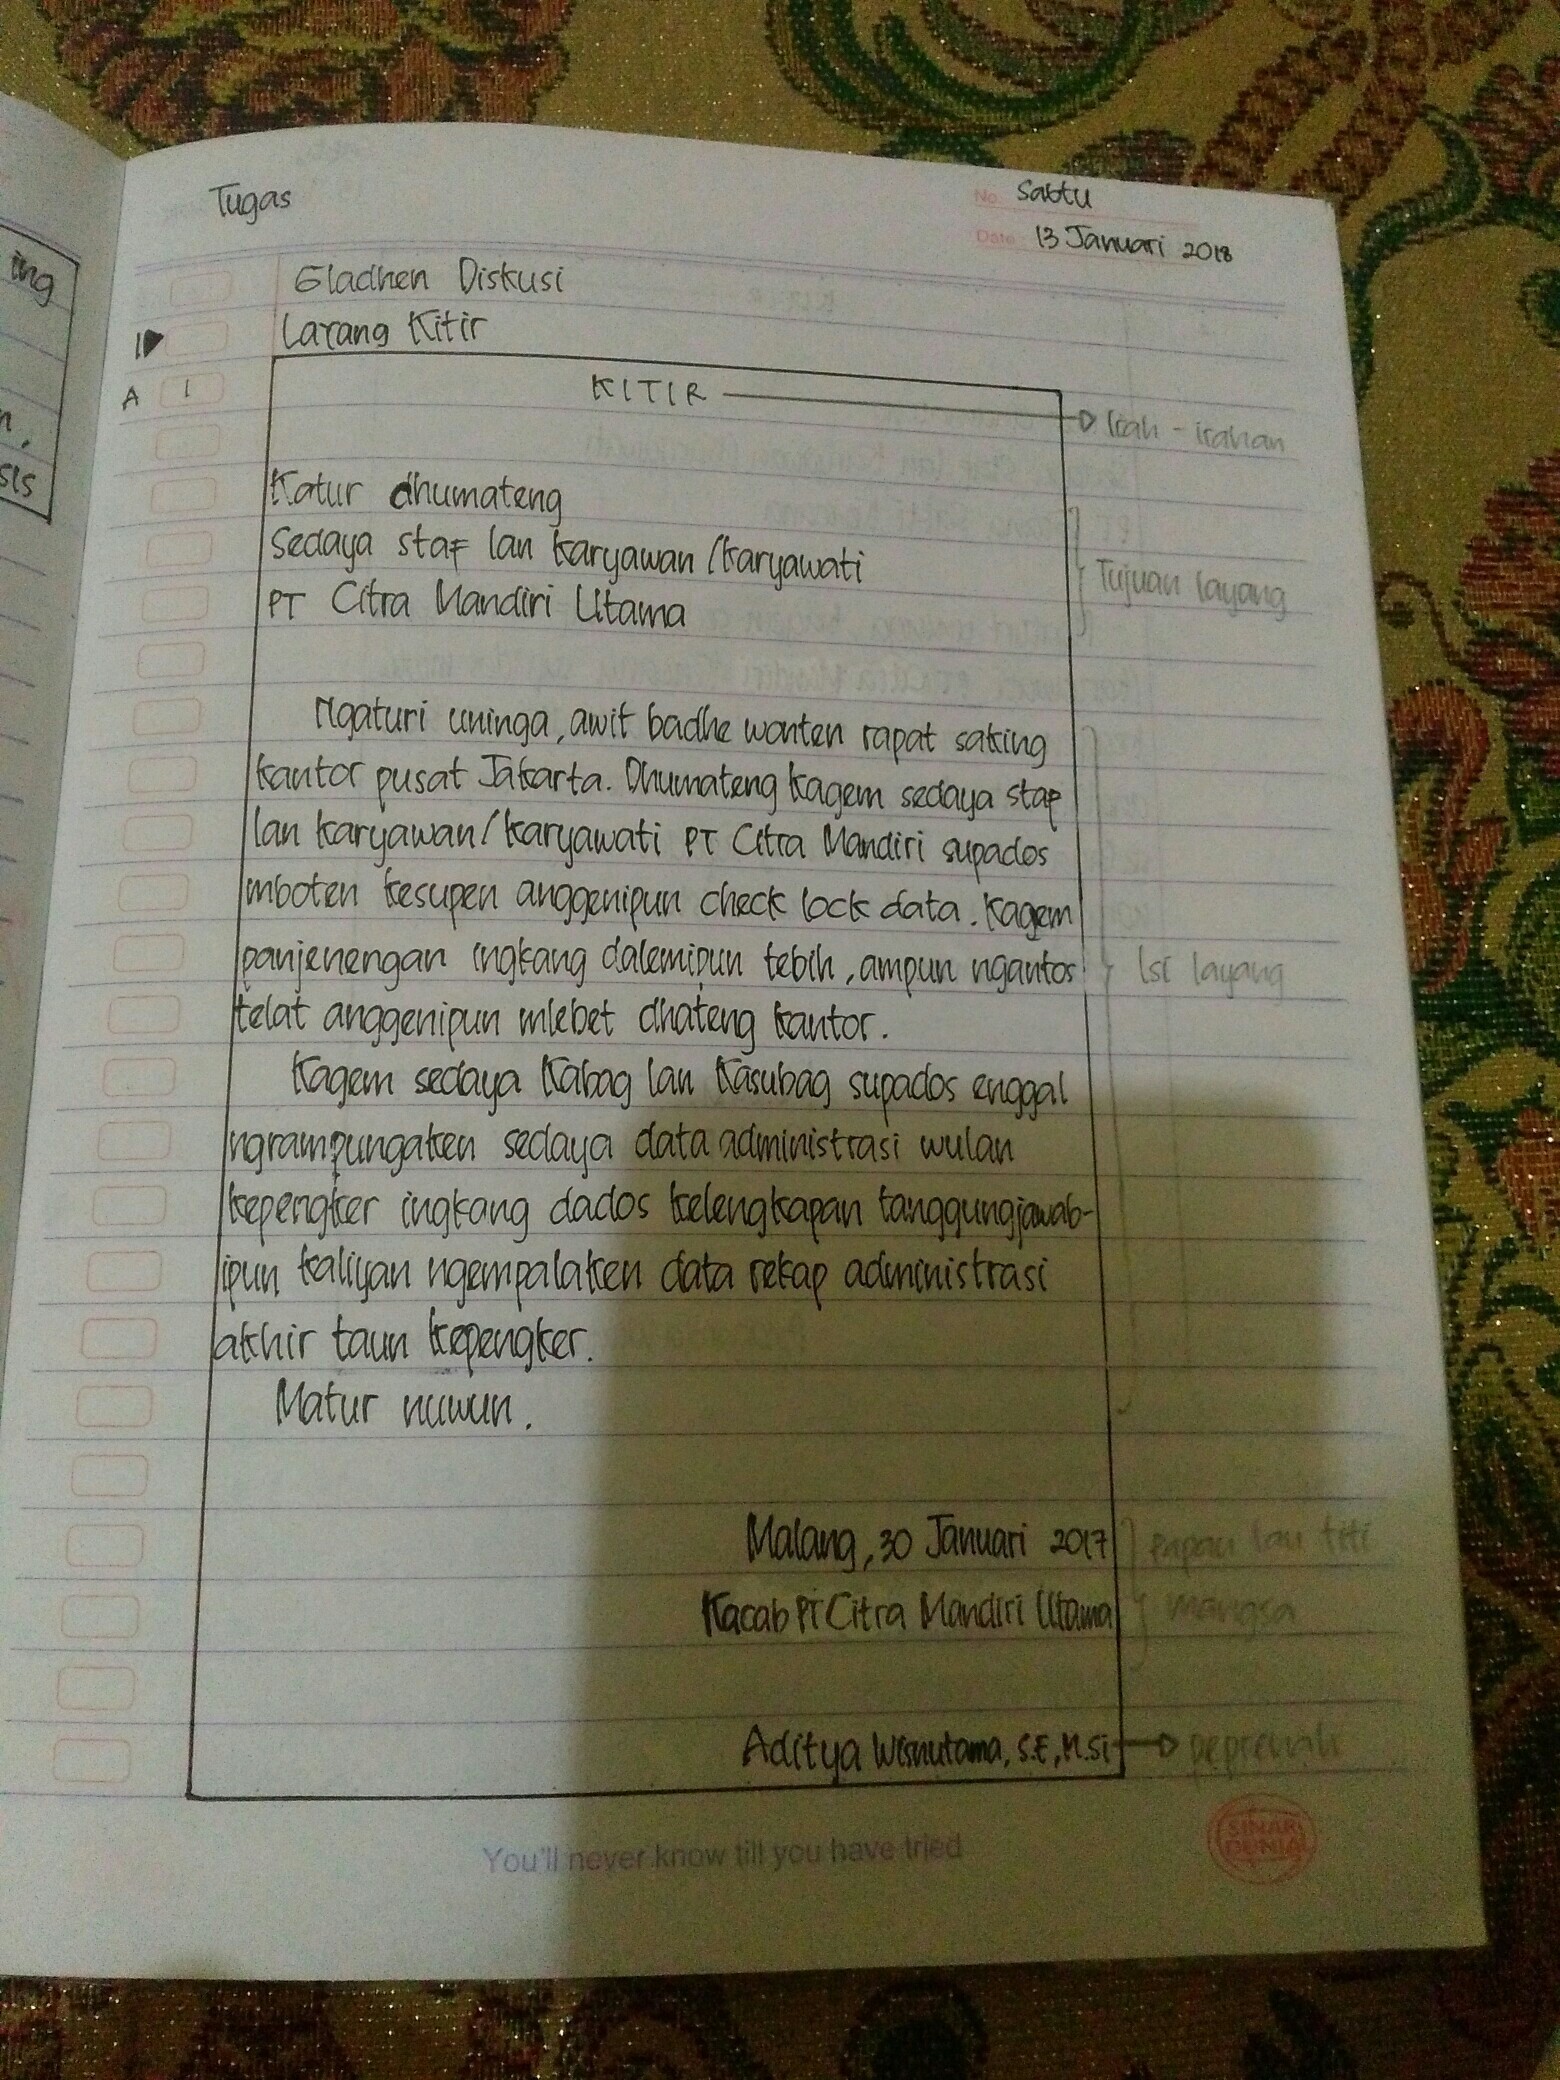 ing
n,
sis
Tugas
No. Sabtu
Date: 13 Januari 2018
Gladhen Diskusi
1
Layang Kitir
A 1
KITIR
Irah - irahan
Katur dhumateng
Sedaya staf lan karyawan/karyawati
PT Citra Mandiri Utama
Tujuan layang
Ngaturi uninga, awit badhe wonten rapat saking
kantor pusat Jakarta. Dhumateng kagem sedaya staf
lan karyawan/karyawati PT Citra Mandiri supados
mboten kesupen anggenipun check lock data. Kagem
panjenengan ingkang dalemipun tebih, ampun ngantos
Isi layang
telat anggenipun mlebet dhateng kantor.
Kagem sedaya Kabag lan Kasubag supados enggal
ngrampungaken sedaya data administrasi wulan
kepengker ingkang dados kelengkapan tanggungjawab-
ipun kaliyan ngempalaken data rekap administrasi
akhir taun kepengker.
Matur nuwun.
Malang, 30 Januari 2017
Papan lan titi
Kacab PT Citra Mandiri Utama
mangsa
Aditya Wisnutama, S.E, M.Si
peprenah
You'll never know till you have tried
SINAR
DUNIA